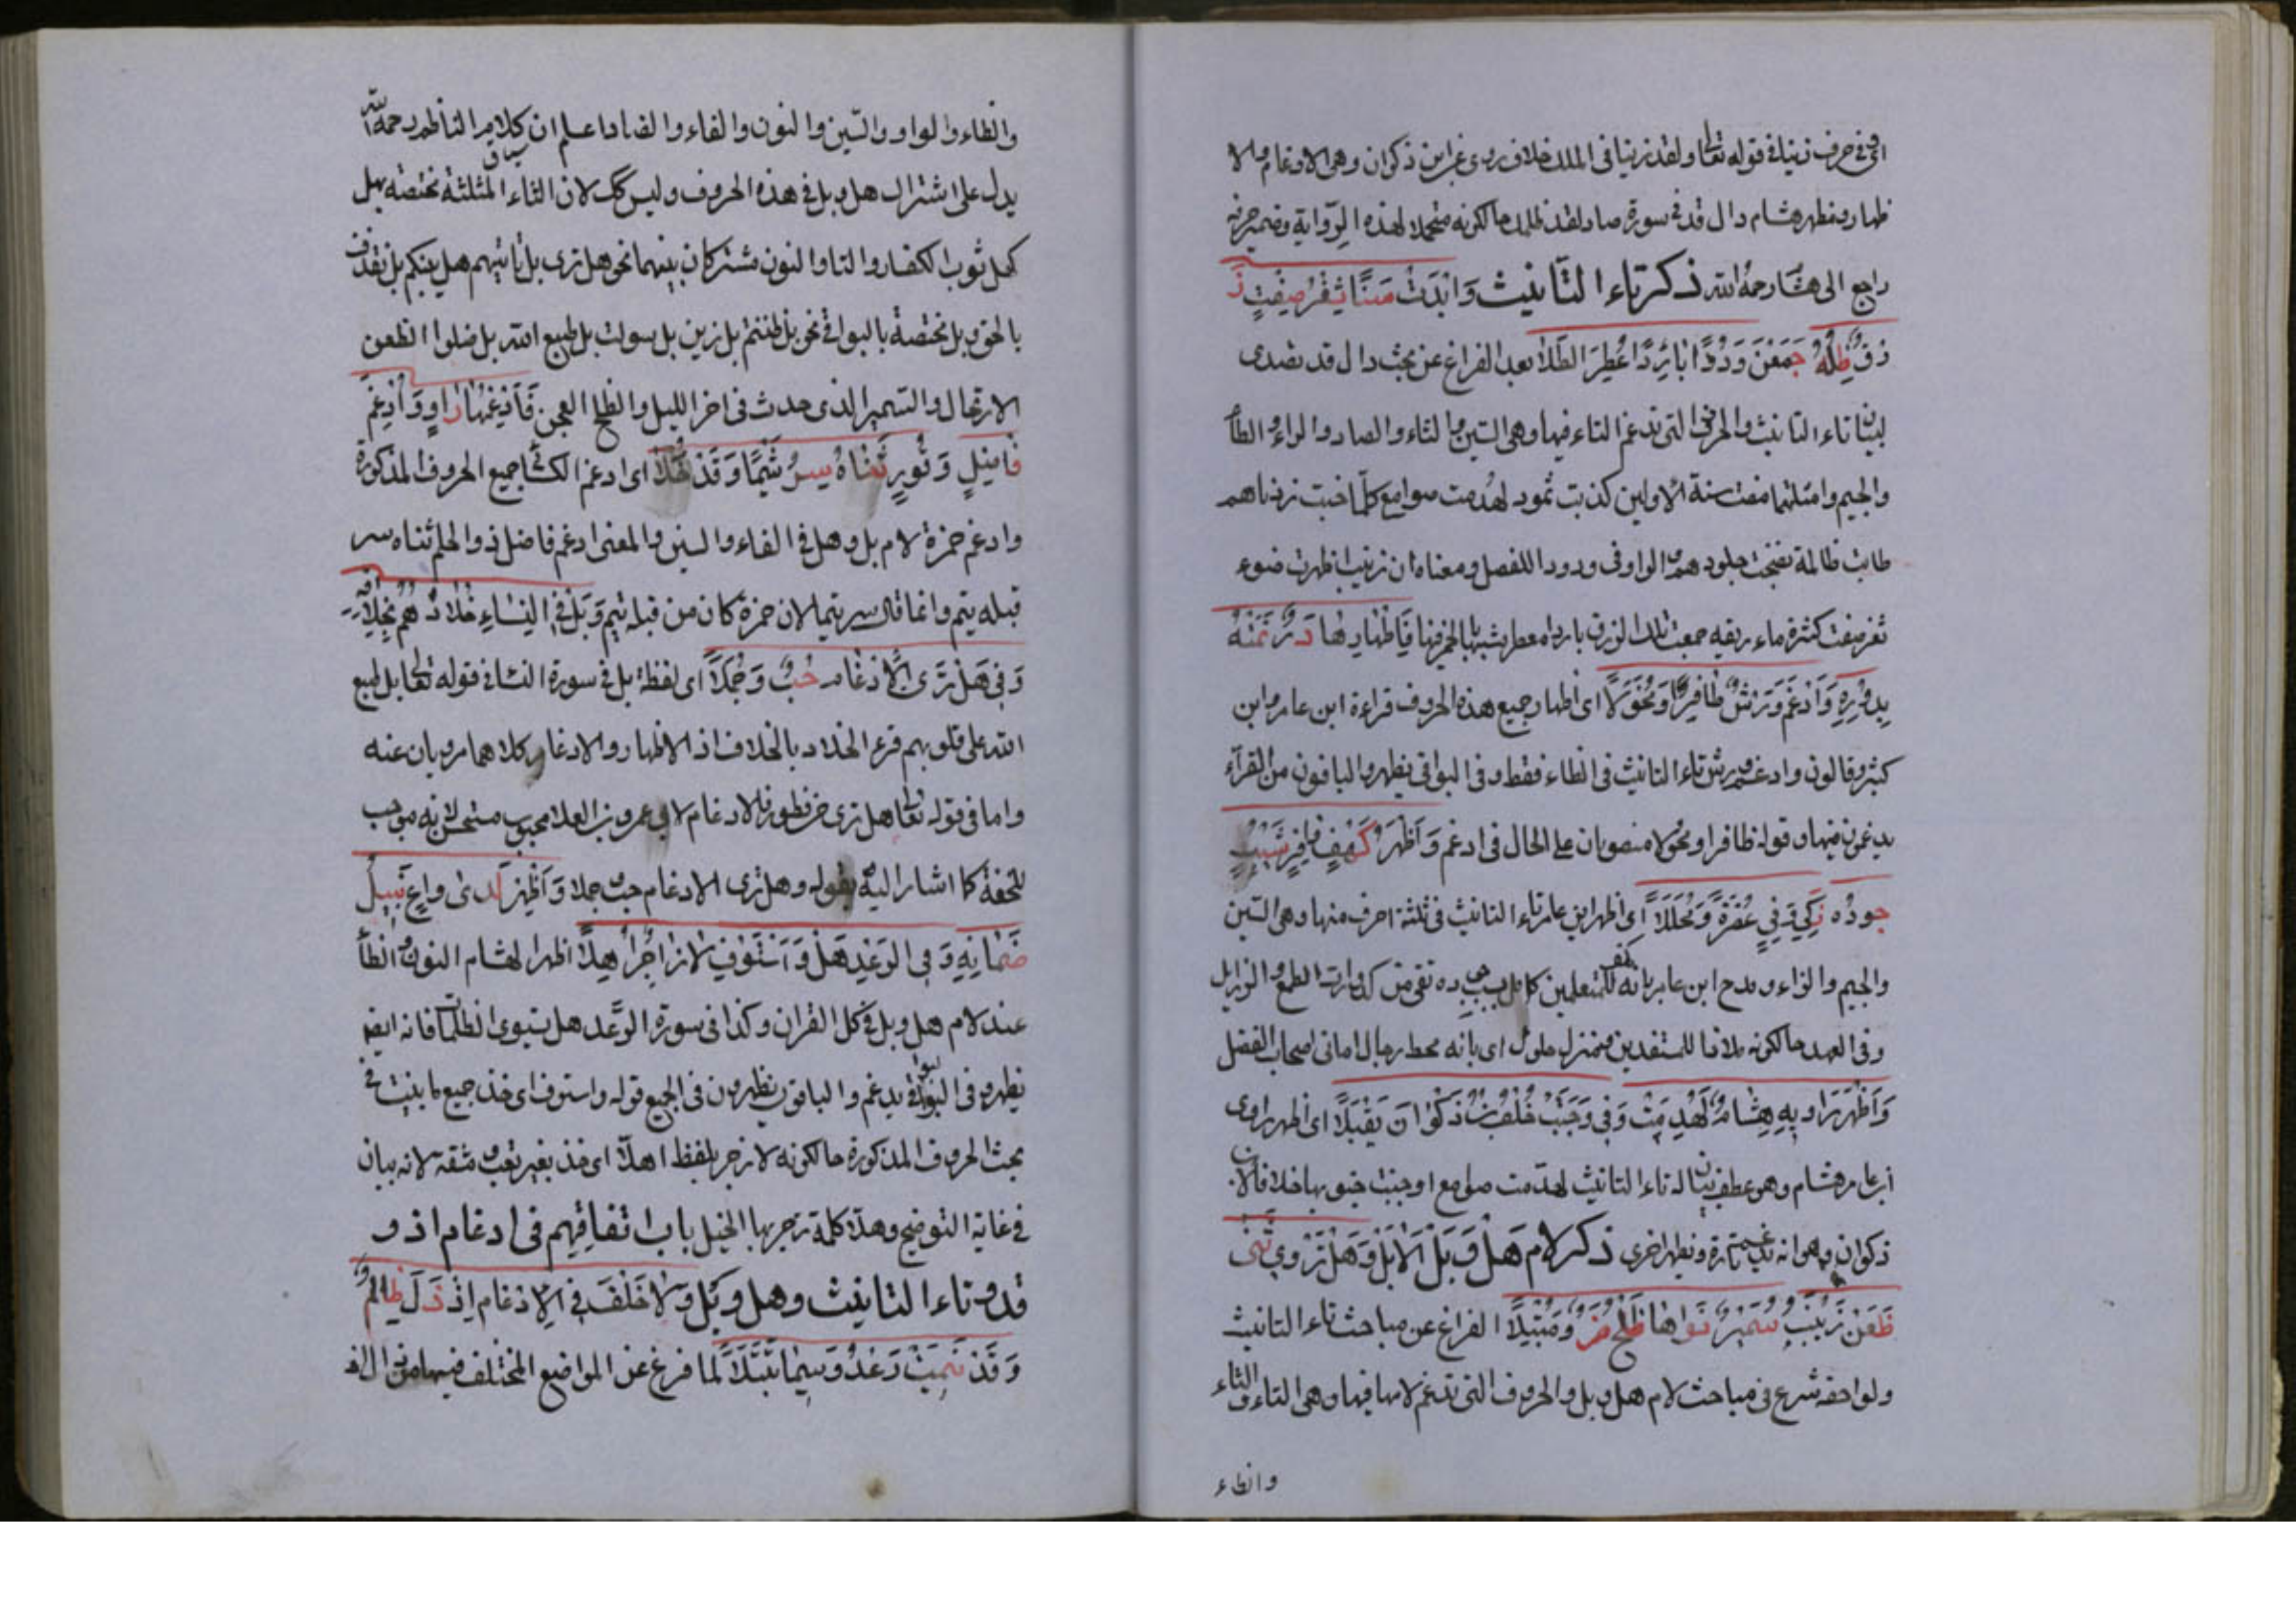 اى فى حرف زينا فى قوله تعالى ولقد زينا فى الملك خلاف روى عن ابن ذكوان وهى الادغام والا
ظهار ومظهر هشام دال قد فى سورة صاد لقد ظلمك حالكونه متحملا لهذه الرواية وضمير حرفه
راجع الى هشام رحمه الله ذكر تاء التأنيث وَاَبْدَتْ سَنَا ثَغْرٍ صَفَتْ زُ
رْقُ ظَلْمِهِ جَمَعْنَ وُرُودًا بَارِدًا عَطِرَ الطِّلَا بعد الفراغ عن بحث دال قد تصدى
لبيان تاء التأنيث والحرف التى تدغم التاء فيها وهى السين والثاء والصاد والزاء والظاء
والجيم وامثلتها مضت سنة الاولين كذبت ثمود لهدمت صوامع كلما خبت زدناهم
كانت ظالمة نضجت جلودهم والواو فى ورودا للفصل ومعناه ان زينب اظهرت ضوء
ثغر صفت كثرة ماء ريقه جمعت تلك الزرق باردا معطرا شبيها بالخمر فَاِظْهَارُهَا دُرٌّ نَمَتْهُ
بُدُورُهُ وَاَدْغَمَ وَرْشٌ ظَافِرًا وَمُخَوَّلَا اى اظهار جميع هذه الحروف قراءة ابن عامر وابن
كثير وقالون وادغم ورش تاء التانيث فى الظاء فقط وفى البواقى يظهر والباقون من القرآء
يدغمون فيها وقوله ظافرا ومخولا منصوبان على الحال فى ادغم وَاَظْهَرَ كَهْفٌ وَافِرٌ سَيْبُ
جُودِهِ زَكِىٌّ وَفِىٌّ عُصْرَةً وَمُحَلَّلَا اى اظهر ابن عامر تاء التانيث فى ثلثة احرف منها وهى السين
والجيم والزاء ومدح ابن عامر بانه كهف للمتعلمين كامل جوده نقى من كدورات الطمع والرزايل
وفى العهد حالكونه ملاذا للمستفدين منزل حلول اى بانه محط رحال امانى اصحاب الفضل
وَاَظْهَرَ رَاوِيهِ هِشَامٌ لَهُدِّمَتْ وَفِى وَجَبَتْ خُلْفُ ابْنِ ذَكْوَانَ يُفْتَلَا اى اظهر راوى
ابن عامر هشام وهو عطف بيان له تاء التانيث لهدمت صوامع او وجبت جنوبها خلاف لابن
ذكوان وهو انه يدغم تارة ويظهر اخرى ذكر لام هَلْ وَبَلْ اَلَا بَلْ وَهَلْ تَرْوِى ثَنَى
ظَعْنِ زَيْنَبٍ سَمِيرَ نَوَاهَا طِلْحَ ضُرٍّ وَمُبْتَلَا الفراغ عن مباحث تاء التانيث
ولواحقه شرع فى مباحث لام هل وبل والحروف التى تدغم لامها فيها وهى التاء والثاء
والظاء
والظاء والواو والسين والنون والفاء والضاد اعلم ان سياق كلام الناظم رحمه الله
يدل على اشتراك هل وبل فى هذه الحروف وليس كك لان الثاء المثلثة مختصة بهل
كهل ثوب الكفار والتا والنون مشتركان بينهما نحو هل ترى بل تاتيهم هل ينبئكم بل نقذف
بالحق وبل مختصة بالبواقى نحو بل ظننتم بل زين بل سولت بل طبع الله بل ضلوا الظعن
الارتحال والسمير الذى حدث فى اخر الليل والطلح العجز فَاَدْغَمَهَا رَاوٍ وَاَدْغَمَ
فَاضِلٌ وَقُورٌ ثَنَاهُ سَرَّ تَيْمًا وَقَدْ حَلَا اى ادغم الكسائى جميع الحروف المذكورة
وادغم حمزة لام بل وهل فى الثاء والسين والمعنى ادغم فاضل ذو الحلم ثناه سر
قبله تيم وانما قال سر تيما لان حمزة كان من قبيلة تيم وَبَلْ فِى النِّسَاءِ خَلَّادُهُمْ بِخِلَافِهِ
وَفِى هَلْ تَرَى الْاِدْغَامُ حُبَّ وَحُمِّلَا اى لفظة بل فى سورة النسا فى قوله تعالى بل طبع
الله على قلوبهم قرء الخلاد بالخلاف اذ الاظهار والادغام كلاهما مرويان عنه
واما فى قوله تعالى هل ترى من فطور فالادغام لابى عمرو بن العلا محبوب مستحسن لانه موجب
للخفة كما اشار اليه بقوله وهل ترى الادغام حب وحملا وَاَظْهِرْ لَدَى وَاعٍ نَبِيلٍ
ضَمَانُهُ وَفِى الرَّعْدِ هَلْ وَاسْتَوْفِ لَا زَاجِرًا هَلَا اظهر لهشام النون والظاء
عند لام هل وبل فى كل القران وكذا فى سورة الرَّعد هل تستوى الظلمات فانه ايضا
يظهره فى البواقى يدغم والباقون يظهرون فى الجميع قوله واستوف اى خذ جميع ما بينت فى
بحث الحروف المذكورة حالكونه لا زجر بلفظ هلا اى خذ بغير تعب ومشقة لانه بيان
فى غاية التوضيح وهلا كلمة تزجر بها الخيل باب اتفاقهم فى ادغام اذ و
قد وتاء التانيث وهل وبل وَلَا خُلْفَ فِى الْاِدْغَامِ اِذْ ذَلَّ ظَالِمٌ
وَقَدْ تَيَّمَتْ دَعْدٌ وَسِيمًا تَبَتَّلَا لما فرغ عن المواضع المختلف فيها من دال اذ